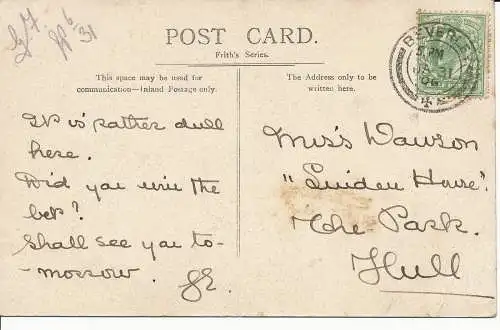 G7.
6
31
POST CARD.
Frith's Series.
This space may be used for
communication—Inland Postage only.
The Address only to be
written here.
BEVERLEY
PM
31
It is rather dull
here.
Did you win the
bet?
Shall see you to-
-morrow.
Miss Dawson
"Linden House".
The Park.
Hull